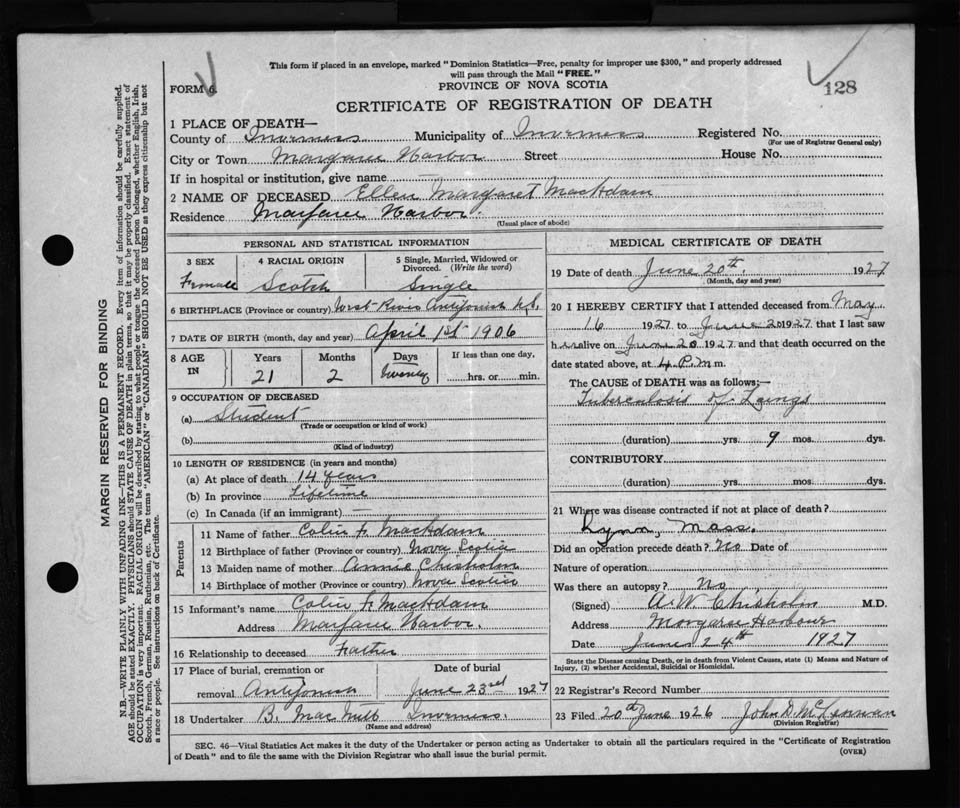 This form if placed in an envelope, marked "Dominion Statistics—Free, penalty for improper use $300," and properly addressed
will pass through the Mail "FREE."
FORM 6.
PROVINCE OF NOVA SCOTIA
128
CERTIFICATE OF REGISTRATION OF DEATH
1 PLACE OF DEATH—
County of Inverness Municipality of Inverness Registered No.
(For use of Registrar General only)
City or Town Margaree Harbor Street House No.
If in hospital or institution, give name
2 NAME OF DECEASED Ellen Margaret MacAdam
Residence Margaree Harbor.
(Usual place of abode)
PERSONAL AND STATISTICAL INFORMATION
3 SEX 4 RACIAL ORIGIN 5 Single, Married, Widowed or Divorced. (Write the word)
Female Scotch Single
6 BIRTHPLACE (Province or country) West River Antigonish N.S.
7 DATE OF BIRTH (month, day and year) April 1st 1906
8 AGE IN Years Months Days If less than one day,
21 2 twenty hrs. or min.
9 OCCUPATION OF DECEASED
(a) Student
(Trade or occupation or kind of work)
(b)
(Kind of industry)
10 LENGTH OF RESIDENCE (in years and months)
(a) At place of death 14 years
(b) In province Lifetime
(c) In Canada (if an immigrant) —
Parents
11 Name of father Colin F. MacAdam
12 Birthplace of father (Province or country) Nova Scotia
13 Maiden name of mother Annie Chisholm
14 Birthplace of mother (Province or country) Nova Scotia
15 Informant's name Colin F. MacAdam
Address Margaree Harbor.
16 Relationship to deceased Father
17 Place of burial, cremation or Date of burial
removal Antigonish June 23rd 1927
18 Undertaker B. Mac Inverness.
(Name and address)
MEDICAL CERTIFICATE OF DEATH
19 Date of death June 20th, 1927
(Month, day and year)
20 I HEREBY CERTIFY that I attended deceased from May
16 1927 to June 20 1927 that I last saw
her alive on June 20 1927 and that death occurred on the
date stated above, at 4 P.M. m.
The CAUSE of DEATH was as follows:—
Tuberculosis of Lungs
(duration) yrs. 9 mos. dys.
CONTRIBUTORY
(duration) yrs. mos. dys.
21 Where was disease contracted if not at place of death?
Lynn, Mass.
Did an operation precede death? No Date of
Nature of operation
Was there an autopsy? No
(Signed) A. W. Chisholm M.D.
Address Margaree Harbour
Date June 24th 1927
State the Disease causing Death, or in death from Violent Causes, state (1) Means and Nature of
Injury, (2) whether Accidental, Suicidal or Homicidal.
22 Registrar's Record Number
23 Filed 20th June 1926 John D. McLennan
(Division Registrar)
SEC. 46—Vital Statistics Act makes it the duty of the Undertaker or person acting as Undertaker to obtain all the particulars required in the "Certificate of Registration
of Death" and to file the same with the Division Registrar who shall issue the burial permit.
(OVER)
MARGIN RESERVED FOR BINDING
N.B.—WRITE PLAINLY WITH UNFADING INK—THIS IS A PERMANENT RECORD. Every item of information should be carefully supplied.
AGE should be stated EXACTLY. PHYSICIANS should STATE CAUSE OF DEATH in plain terms, so that it may be properly classified. Exact statement of
OCCUPATION is very important. RACIAL ORIGIN will be described by stating to what people or tongue the deceased person belonged, whether English, Irish,
Scotch, French, German, Russian, Ruthenian, etc. The terms "AMERICAN" or "CANADIAN" SHOULD NOT BE USED as they express citizenship but not
a race or people. See instructions on back of Certificate.